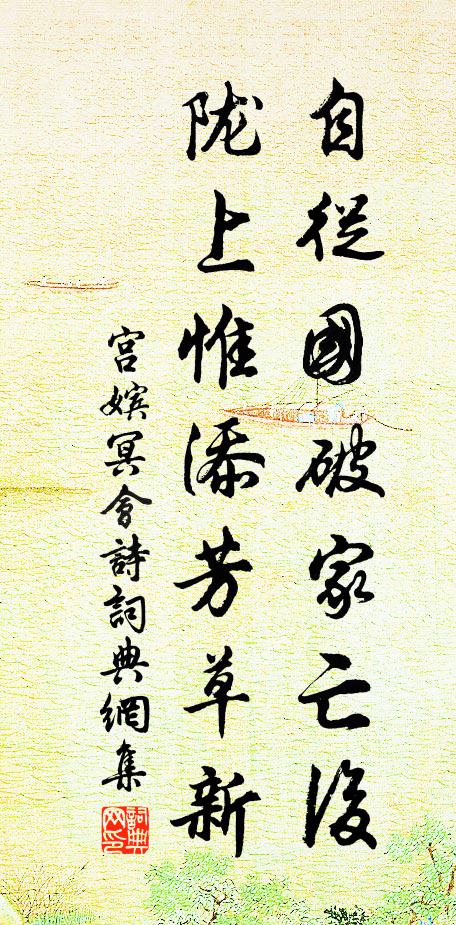 自從國破家亡後
陇上惟添芳草新
宮嬪冥會詩詞典網集
詞典网印